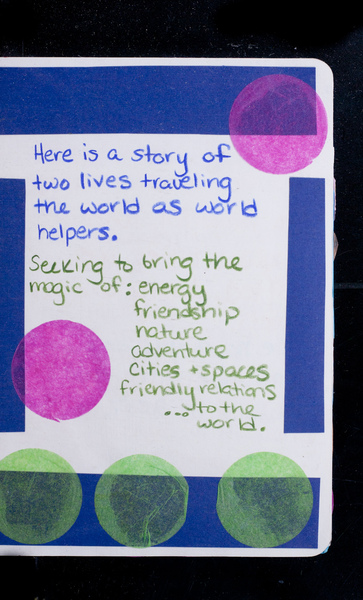 Here is a story of
two lives traveling
the world as world
helpers.
Seeking to bring the
magic of: energy
friendship
nature
adventure
Cities + spaces
friendly relations
...to the
world.